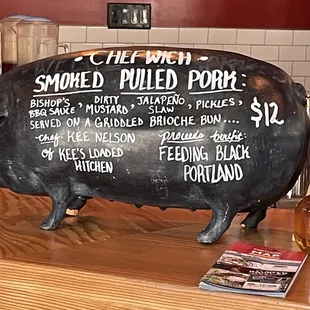 • CHEFWICH •
SMOKED PULLED PORK:
BISHOP'S BBQ SAUCE, DIRTY MUSTARD, JALAPEÑO SLAW, PICKLES,
SERVED ON A GRIDDLED BRIOCHE BUN....
$12
Chef: KEE NELSON
of KEE'S LOADED
KITCHEN
proceeds benefit:
FEEDING BLACK
PORTLAND
MAP